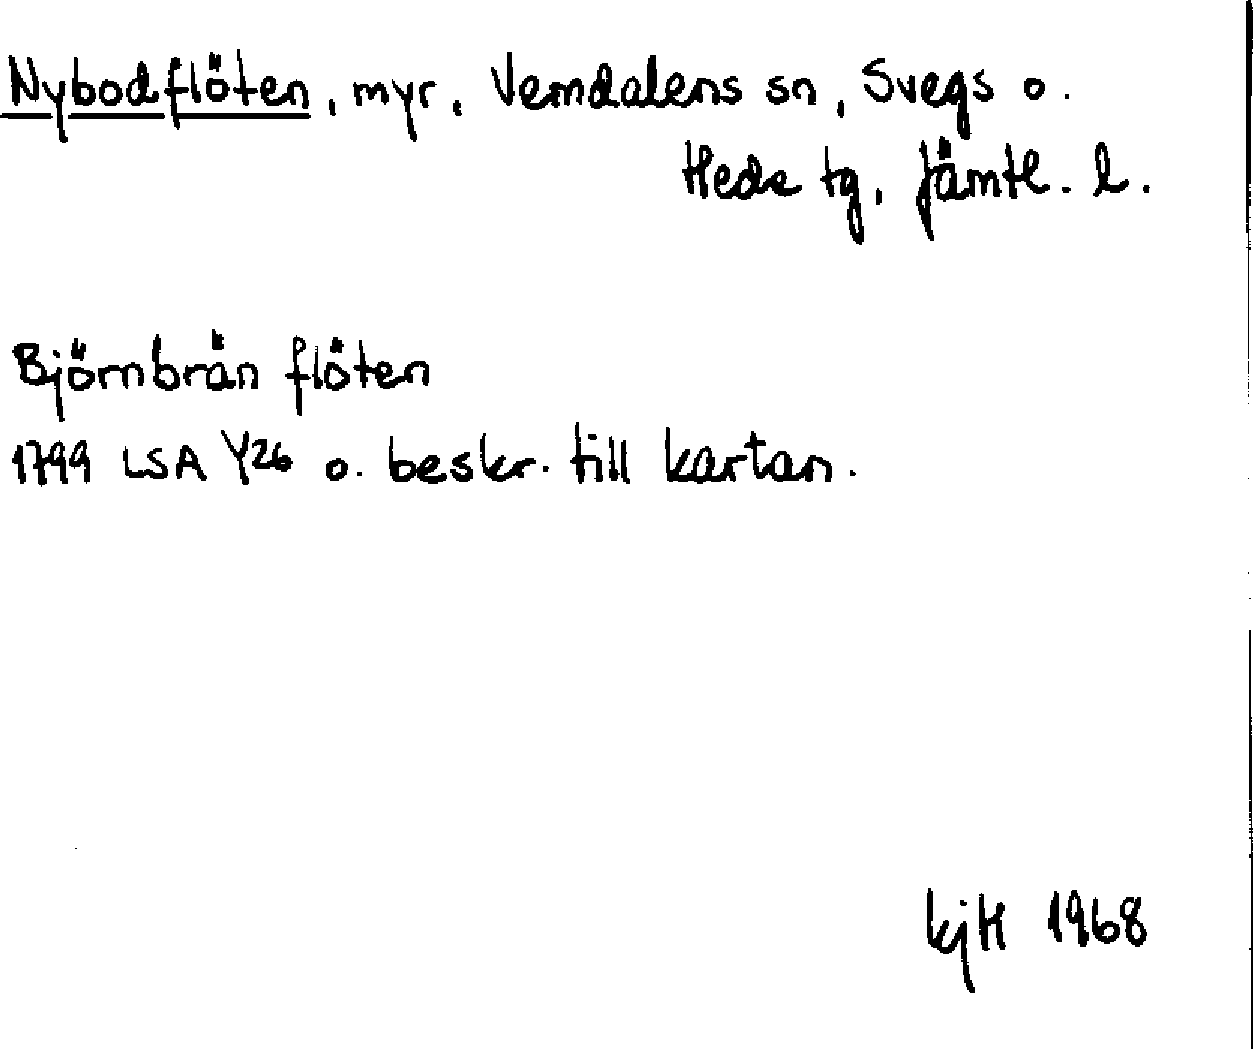 Nybodflöten, myr, Vemdalens sn, Svegs o.
Heds tg, Jämtl. l.
Björnbrän flöten
1799 LSA Y26 o. beskr. till kartan.
kjH 1968